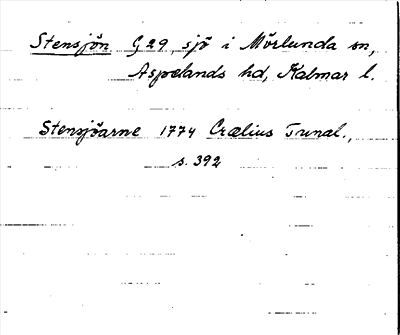 Stensjön G 29 sjö i Mörlunda sn,
Aspelands hd, Kalmar l.
Stensjöarne 1774 Crælius Tunal.,
s. 392